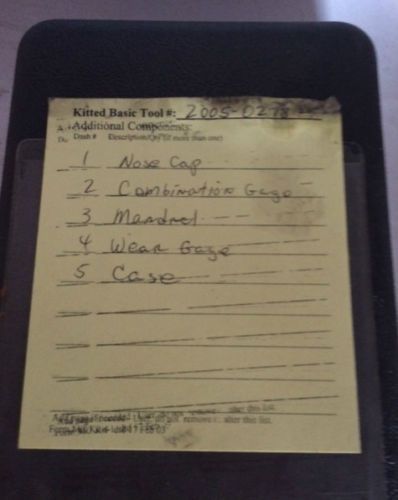 Kitted Basic Tool #: 2005-02
Additional Components:
Dash # Description (Qty if more than one)
1 Nose Cap
2 Combination Gage
3 Mandrel
4 Wear Gage
5 Case
alter this list.
remove alter this list.